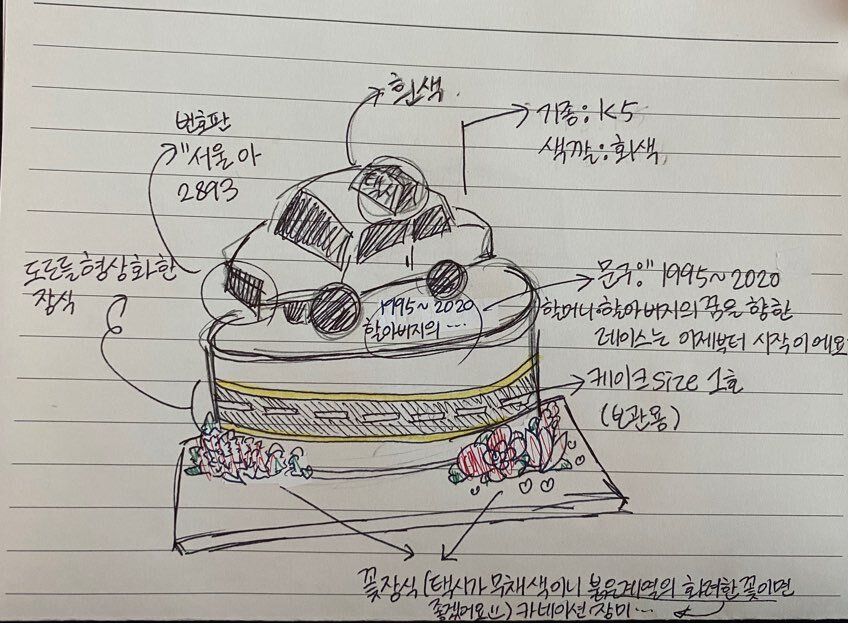 흰색
기종: K5
색깔: 회색
번호판
"서울 아
2893
택시
도로를 형상화한
장식
1995~2020
할아버지의 …
문구: " 1995~2020
할머니·할아버지의 꿈을 향한
레이스는 이제부터 시작이에요
케이크 size 1호
(보관용)
꽃장식 (택시가 무채색이니 붉은계열의 화려한 꽃이면
좋겠어요!!) 카네이션·장미…